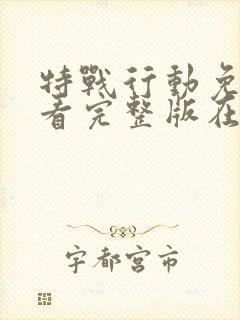 特戰行動免
看完整版在
宇都宮市